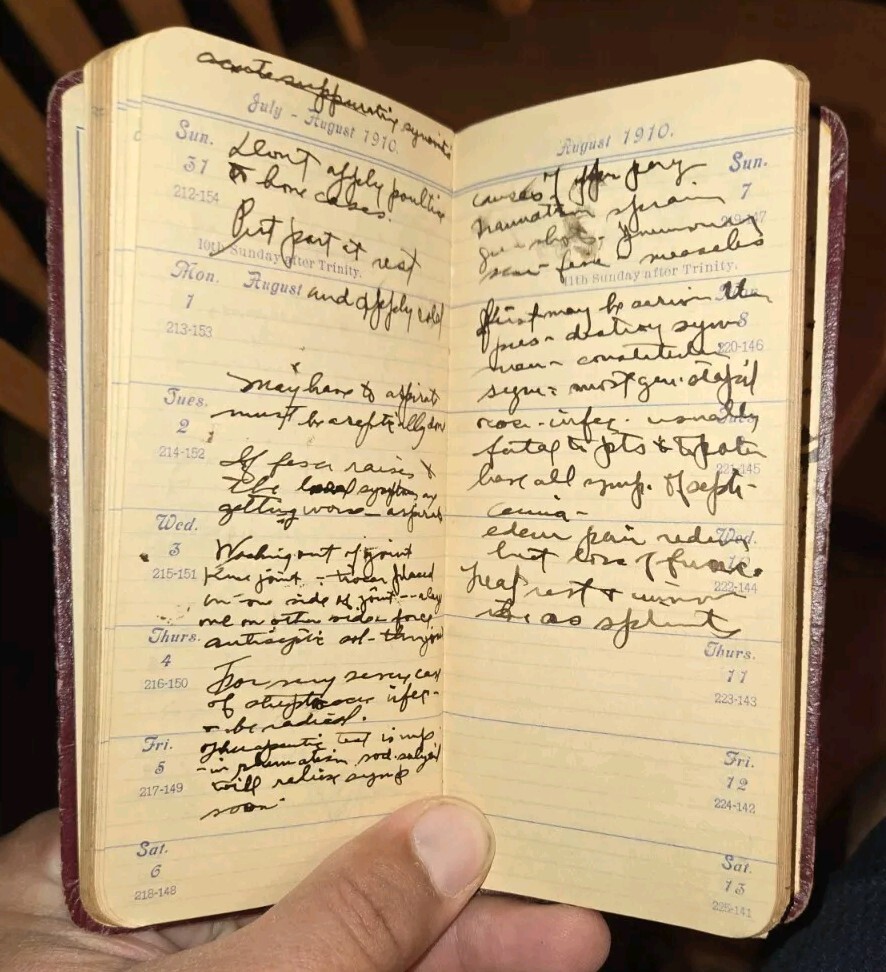 acute suppurating synovitis
July - August 1910.
Sun.
31
212-154
Dont apply poultice
to bone cases.
Put part at rest
10th Sunday after Trinity.
Mon.
August and apply cold
1
213-153
may have to aspirate
Tues.
must be aseptically done
2
214-152
If fever raises &
the local symptoms are
getting worse - aspirate
Wed.
3
Washing out of joint
215-151
Knee joint - trocar placed
on one side of joint -
one on other side force
antiseptic sol -
Thurs.
4
For very severe case
216-150
of infec-
be radical.
Fri.
therapeutic test is imp
5
in rheumatism sod. salicyl
217-149
will relieve symp
soon.
Sat.
6
218-148
August 1910.
Sun.
causes of
7
sprain
219-147
gun shot, pneumonia
scar- fever measles
11th Sunday after Trinity.
first may be serious
8
destroy
220-146
constitutional
symp - most
infec. usually
fatal to pts &
221-145
have all symp. of septi-
cemia -
Wed.
edem pain redness
heat loss of func
222-144
rest &
as splint
Thurs.
11
223-143
Fri.
12
224-142
Sat.
13
225-141